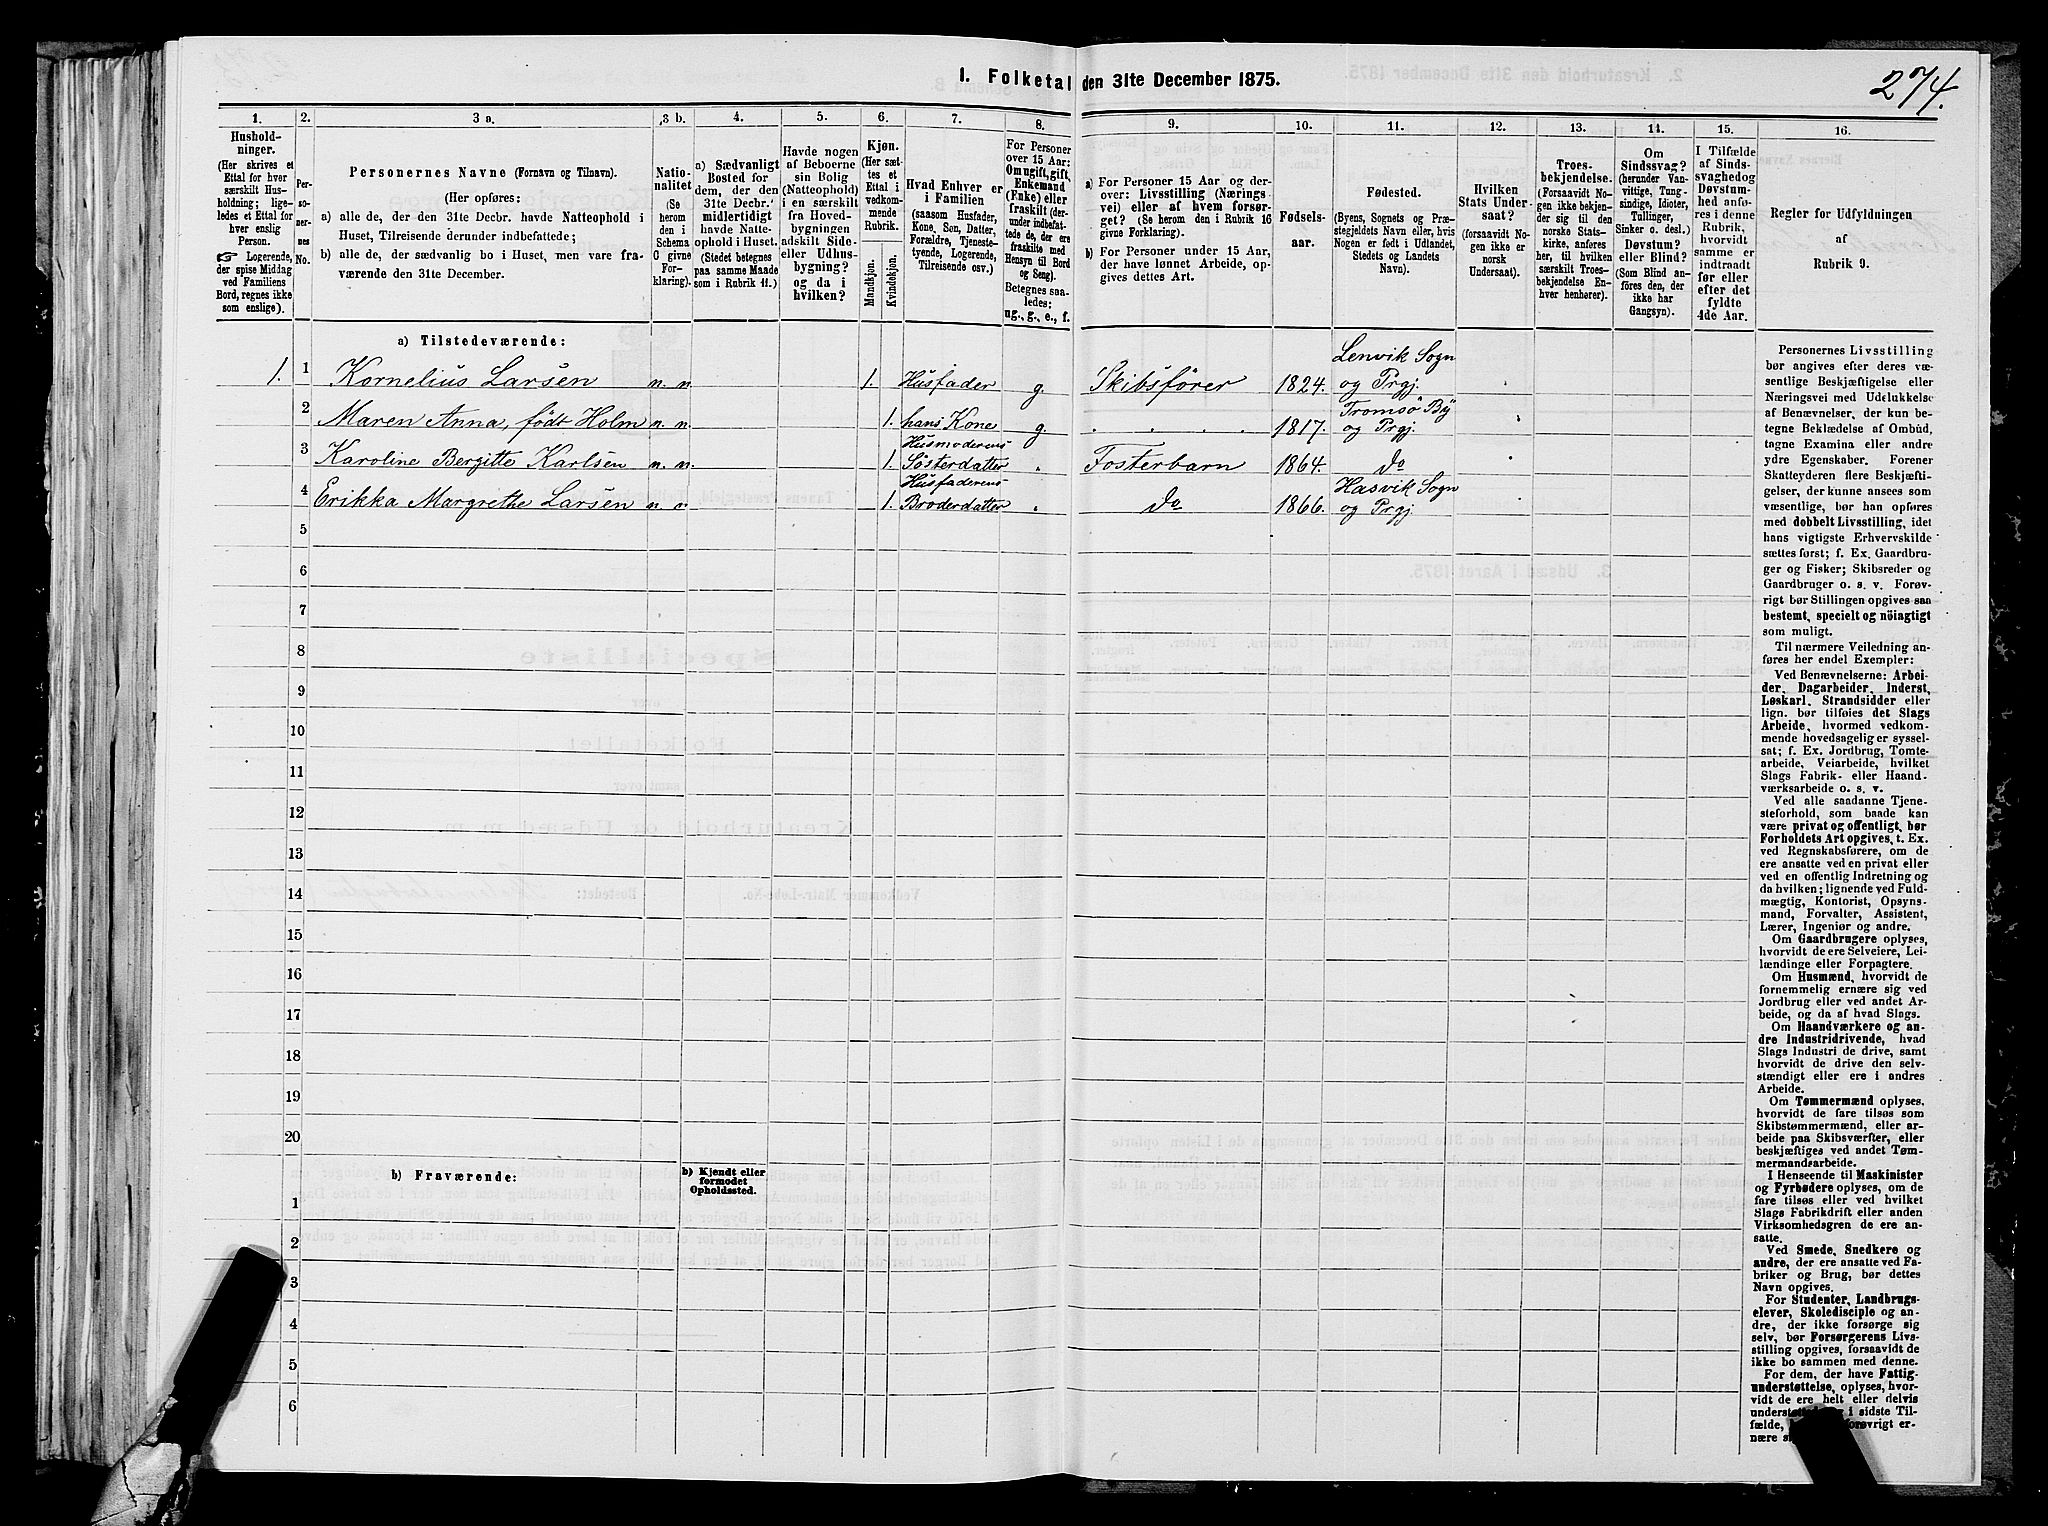 1. Folketal den 31te December 1875.
274.
1.
Hushold-
ninger.
(Her skrives et
Ettal for hver
særskilt Hus-
holdning; lige-
ledes et Ettal for
hver enslig
Person.
☞ Logerende,
der spise Middag
ved Familiens
Bord, regnes ikke
som enslige).
2.
Per-
so-
ner-
nes
No.
3 a.
Personernes Navne (Fornavn og Tilnavn).
(Her opføres:
a) alle de, der den 31te Decbr. havde Natteophold i
Huset, Tilreisende derunder indbefattede;
b) alle de, der sædvanlig bo i Huset, men vare fra-
værende den 31te December.
3 b.
Natio-
nalitet
(Se
herom
den i
Schema
C givne
For-
klaring).
4.
a) Sædvanligt
Bosted for
dem, der den
31te Decbr.
midlertidigt
havde Natte-
ophold i Huset.
(Stedet betegnes
paa samme Maade
som i Rubrik 11.)
5.
Havde nogen
af Beboerne
sin Bolig
(Natteophold)
i en særskilt
fra Hoved-
bygningen
adskilt Side-
eller Udhus-
bygning?
og da i
hvilken?
6.
Kjøn.
(Her sæt-
tes et
Ettal i
vedkom-
mende
Rubrik.
Mandkjøn.
Kvindekjøn.
7.
Hvad Enhver er
i Familien
(saasom Husfader,
Kone, Søn, Datter,
Forældre, Tjeneste-
tyende, Logerende,
Tilreisende osv.)
8.
For Personer
over 15 Aar:
Om ugift, gift,
Enkemand
(Enke) eller
fraskilt (der-
under indbefat-
tede de, der ere
fraskilte med
Hensyn til Bord
og Seng).
Betegnes saa-
ledes:
ug., g., e., f.
9.
a) For Personer 15 Aar og der-
over: Livsstilling (Nærings-
vei) eller af hvem forsør-
get? (Se herom den i Rubrik 16
givne Forklaring).
b) For Personer under 15 Aar,
der have lønnet Arbeide, op-
gives dettes Art.
10.
Fødsels-
aar.
11.
Fødested.
(Byens, Sognets og Præ-
stegjeldets Navn eller, hvis
Nogen er født i Udlandet,
Stedets og Landets
Navn).
12.
Hvilken
Stats Under-
saat?
(forsaavidt No-
gen ikke er
norsk
Undersaat).
13.
Troes-
bekjendelse.
(Forsaavidt No-
gen ikke bekjen-
der sig til den
norske Stats-
kirke, anføres
her, til hvilken
særskilt Troes-
bekjendelse En-
hver henhører).
14.
Om
Sindssvag?
(herunder Van-
vittige, Tung-
sindige, Idioter,
Tullinger,
Sinker o. desl.)
Døvstum?
eller Blind?
(Som Blind an-
føres den, der
ikke har
Gangsyn).
15.
I Tilfælde
af Sinds-
svaghed og
Døvstum-
hed anfø-
res i denne
Rubrik,
hvorvidt
samme er
indtraadt
før eller
efter det
fyldte
4de Aar.
16.
Regler for Udfyldningen
af
Rubrik 9.
a) Tilstedeværende:
1. 1 Kornelius Larsen n. n. 1. Husfader g. Skibsfører 1824. Lenvik Sogn og Prgj.
2 Maren Anna, født Holm n. n. 1. hans Kone g 1817. Tromsö By og Prgj.
3 Karoline Bergitte Karlsen n. n. 1. Husmoderens Sösterdatter Fosterbarn 1864. do
4 Erikka Margrethe Larsen n. n. 1. Husfaderens Broderdatter do 1866. Hasvik Sogn og Prgj.
5
6
7
8
9
10
11
12
13
14
15
16
17
18
19
20
b) Fraværende:
b) Kjendt eller
formodet
Opholdssted.
1
2
3
4
5
6
Personernes Livsstilling
bør angives efter deres væ-
sentlige Beskjæftigelse eller
Næringsvei med Udelukkelse
af Benævnelser, der kun be-
tegne Beklædelse af Ombud,
tagne Examina eller andre
ydre Egenskaber. Forener
Skatteyderen flere Beskjæfti-
gelser, der kunne ansees som
væsentlige, bør han opføres
med dobbelt Livsstilling, idet
hans vigtigste Erhvervskilde
sættes først; f. Ex. Gaardbru-
ger og Fisker; Skibsreder og
Gaardbruger o. s. v. Forøv-
rigt bør Stillingen opgives saa
bestemt, specielt og nøiagtigt
som muligt.
Til nærmere Veiledning an-
føres her endel Exempler:
Ved Benævnelserne: Arbei-
der, Dagarbeider, Inderst,
Løskarl, Strandsidder eller
lign. bør tilføies det Slags
Arbeide, hvormed vedkom-
mende hovedsagelig er syssel-
sat; f. Ex. Jordbrug, Tomte-
arbeide, Veiarbeide, hvilket
Slags Fabrik- eller Haand-
værksarbeide o. s. v.
Ved alle saadanne Tjene-
steforhold, som baade kan
være privat og offentligt, bør
Forholdets Art opgives, t. Ex.
ved Regnskabsførere, om de
ere ansatte ved en privat eller
ved en offentlig Indretning og
da hvilken; lignende ved Fuld-
mægtig, Kontorist, Opsyns-
mand, Forvalter, Assistent,
Lærer, Ingeniør og andre.
Om Gaardbrugere oplyses,
hvorvidt de ere Selveiere, Lei-
lændinge eller Forpagtere.
Om Husmænd, hvorvidt de
fornemmelig ernære sig ved
Jordbrug eller ved andet Ar-
beide, og da af hvad Slags.
Om Haandværkere og an-
dre Industridrivende, hvad
Slags Industri de drive, samt
hvorvidt de drive den selv-
stændigt eller ere i andres
Arbeide.
Om Tømmermænd oplyses,
hvorvidt de fare tilsøs som
Skibstømmermænd, eller ar-
beide paa Skibsværfter, eller
beskjæftiges ved andet Tøm-
mermandsarbeide.
I Henseende til Maskinister
og Fyrbødere oplyses, om de
fare tilsøs eller ved hvilket
Slags Fabrikdrift eller anden
Virksomhedsgren de ere an-
satte.
Ved Smede, Snedkere og
andre, der ere ansatte ved Fa-
briker og Brug, bør dettes
Navn opgives.
For Studenter, Landbrugs-
elever, Skoledisciple og an-
dre, der ikke forsørge sig
selv, bør Forsørgerens Livs-
stilling opgives, forsaavidt de
ikke bo sammen med denne.
For dem, der have Fattig-
understøttelse, oplyses, hvor-
vidt de ere helt eller delvis
i sidste Til-
fælde, forøvrigt er-
nære